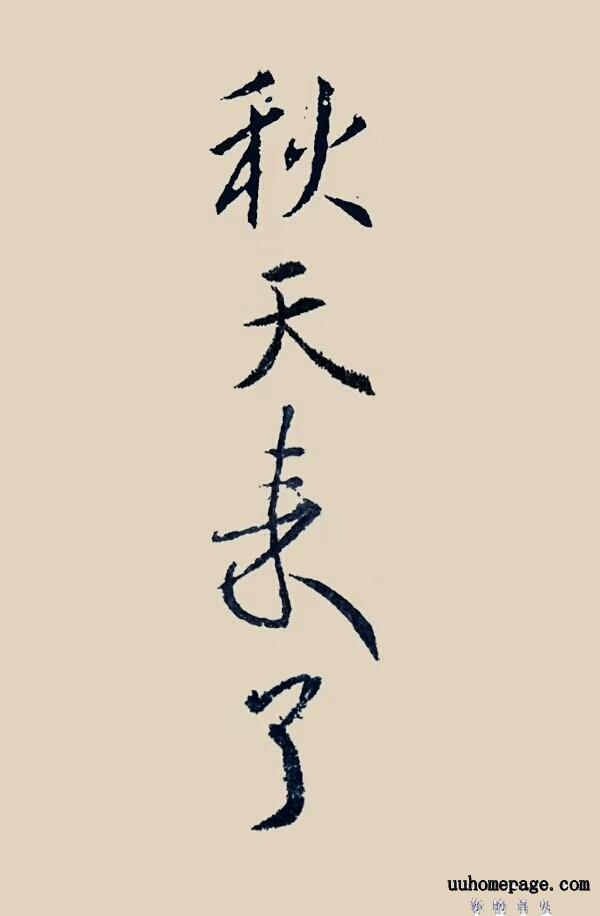 秋天来了
uuhomepage.com